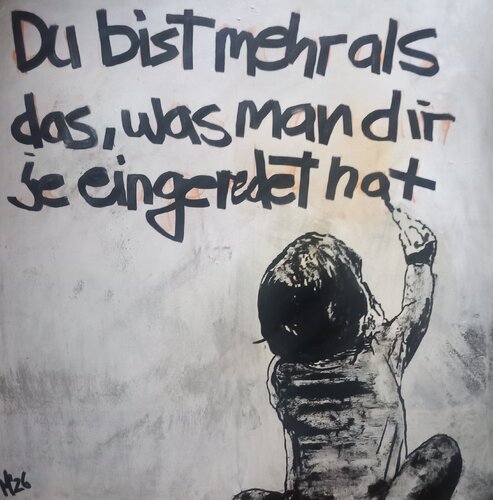 Du bist mehr als
das, was man dir
je eingeredet hat